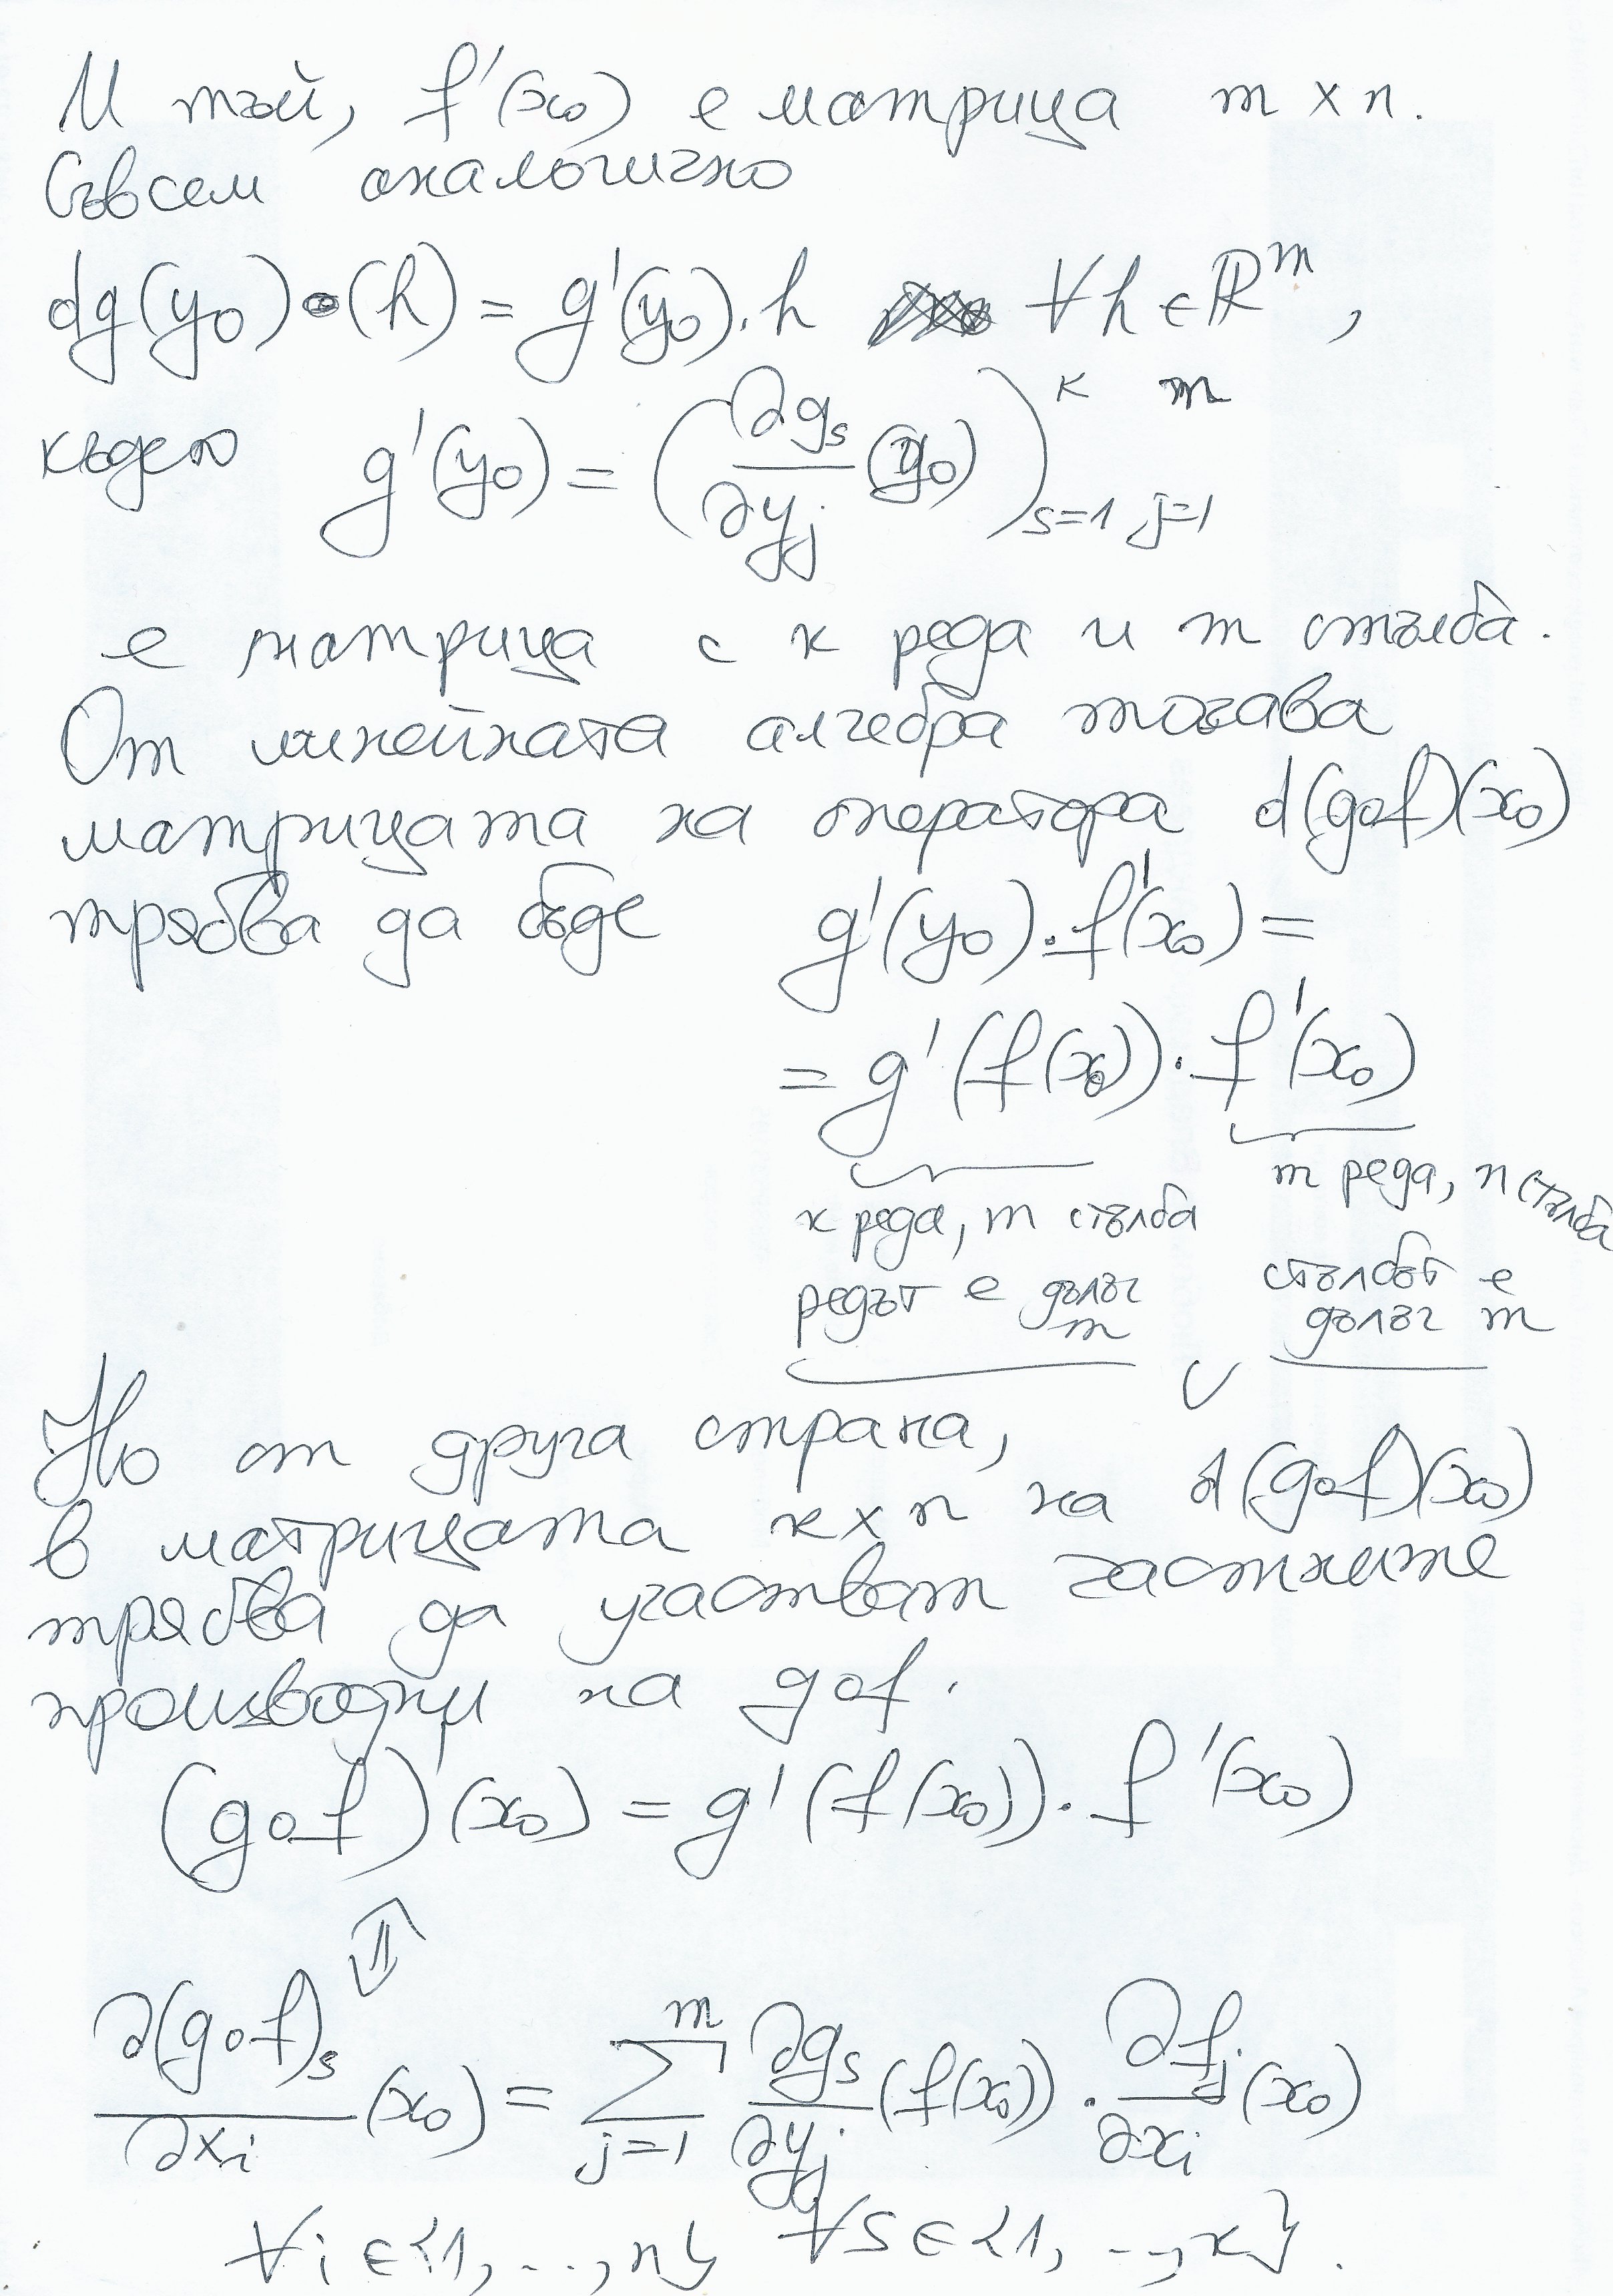 И тъй, f'(x₀) е матрица m × n.
Съвсем аналогично
dg(y₀)•(h) = g'(y₀).h ∀h ∈ ℝᵐ,
където g'(y₀) = (∂gₛ/∂yⱼ (y₀))ᵏₛ₌₁ ᵐⱼ₌₁
е матрица с k реда и m стълба.
От линейната алгебра тогава
матрицата на оператора d(g∘f)(x₀)
трябва да бъде g'(y₀).f'(x₀) =
= g'(f(x₀)).f'(x₀)
m реда, n стълба
k реда, m стълба
редът е дълъг m
стълбът е дълъг m
Но от друга страна,
в матрицата k×n на d(g∘f)(x₀)
трябва да участват частните
производни на g∘f.
(g∘f)'(x₀) = g'(f(x₀)).f'(x₀)
⇕
∂(g∘f)ₛ/∂xᵢ (x₀) = ∑ⱼ₌₁ᵐ ∂gₛ/∂yⱼ (f(x₀)) . ∂fⱼ/∂xᵢ (x₀)
∀i ∈ {1, ..., n} ∀s ∈ {1, ..., k}.